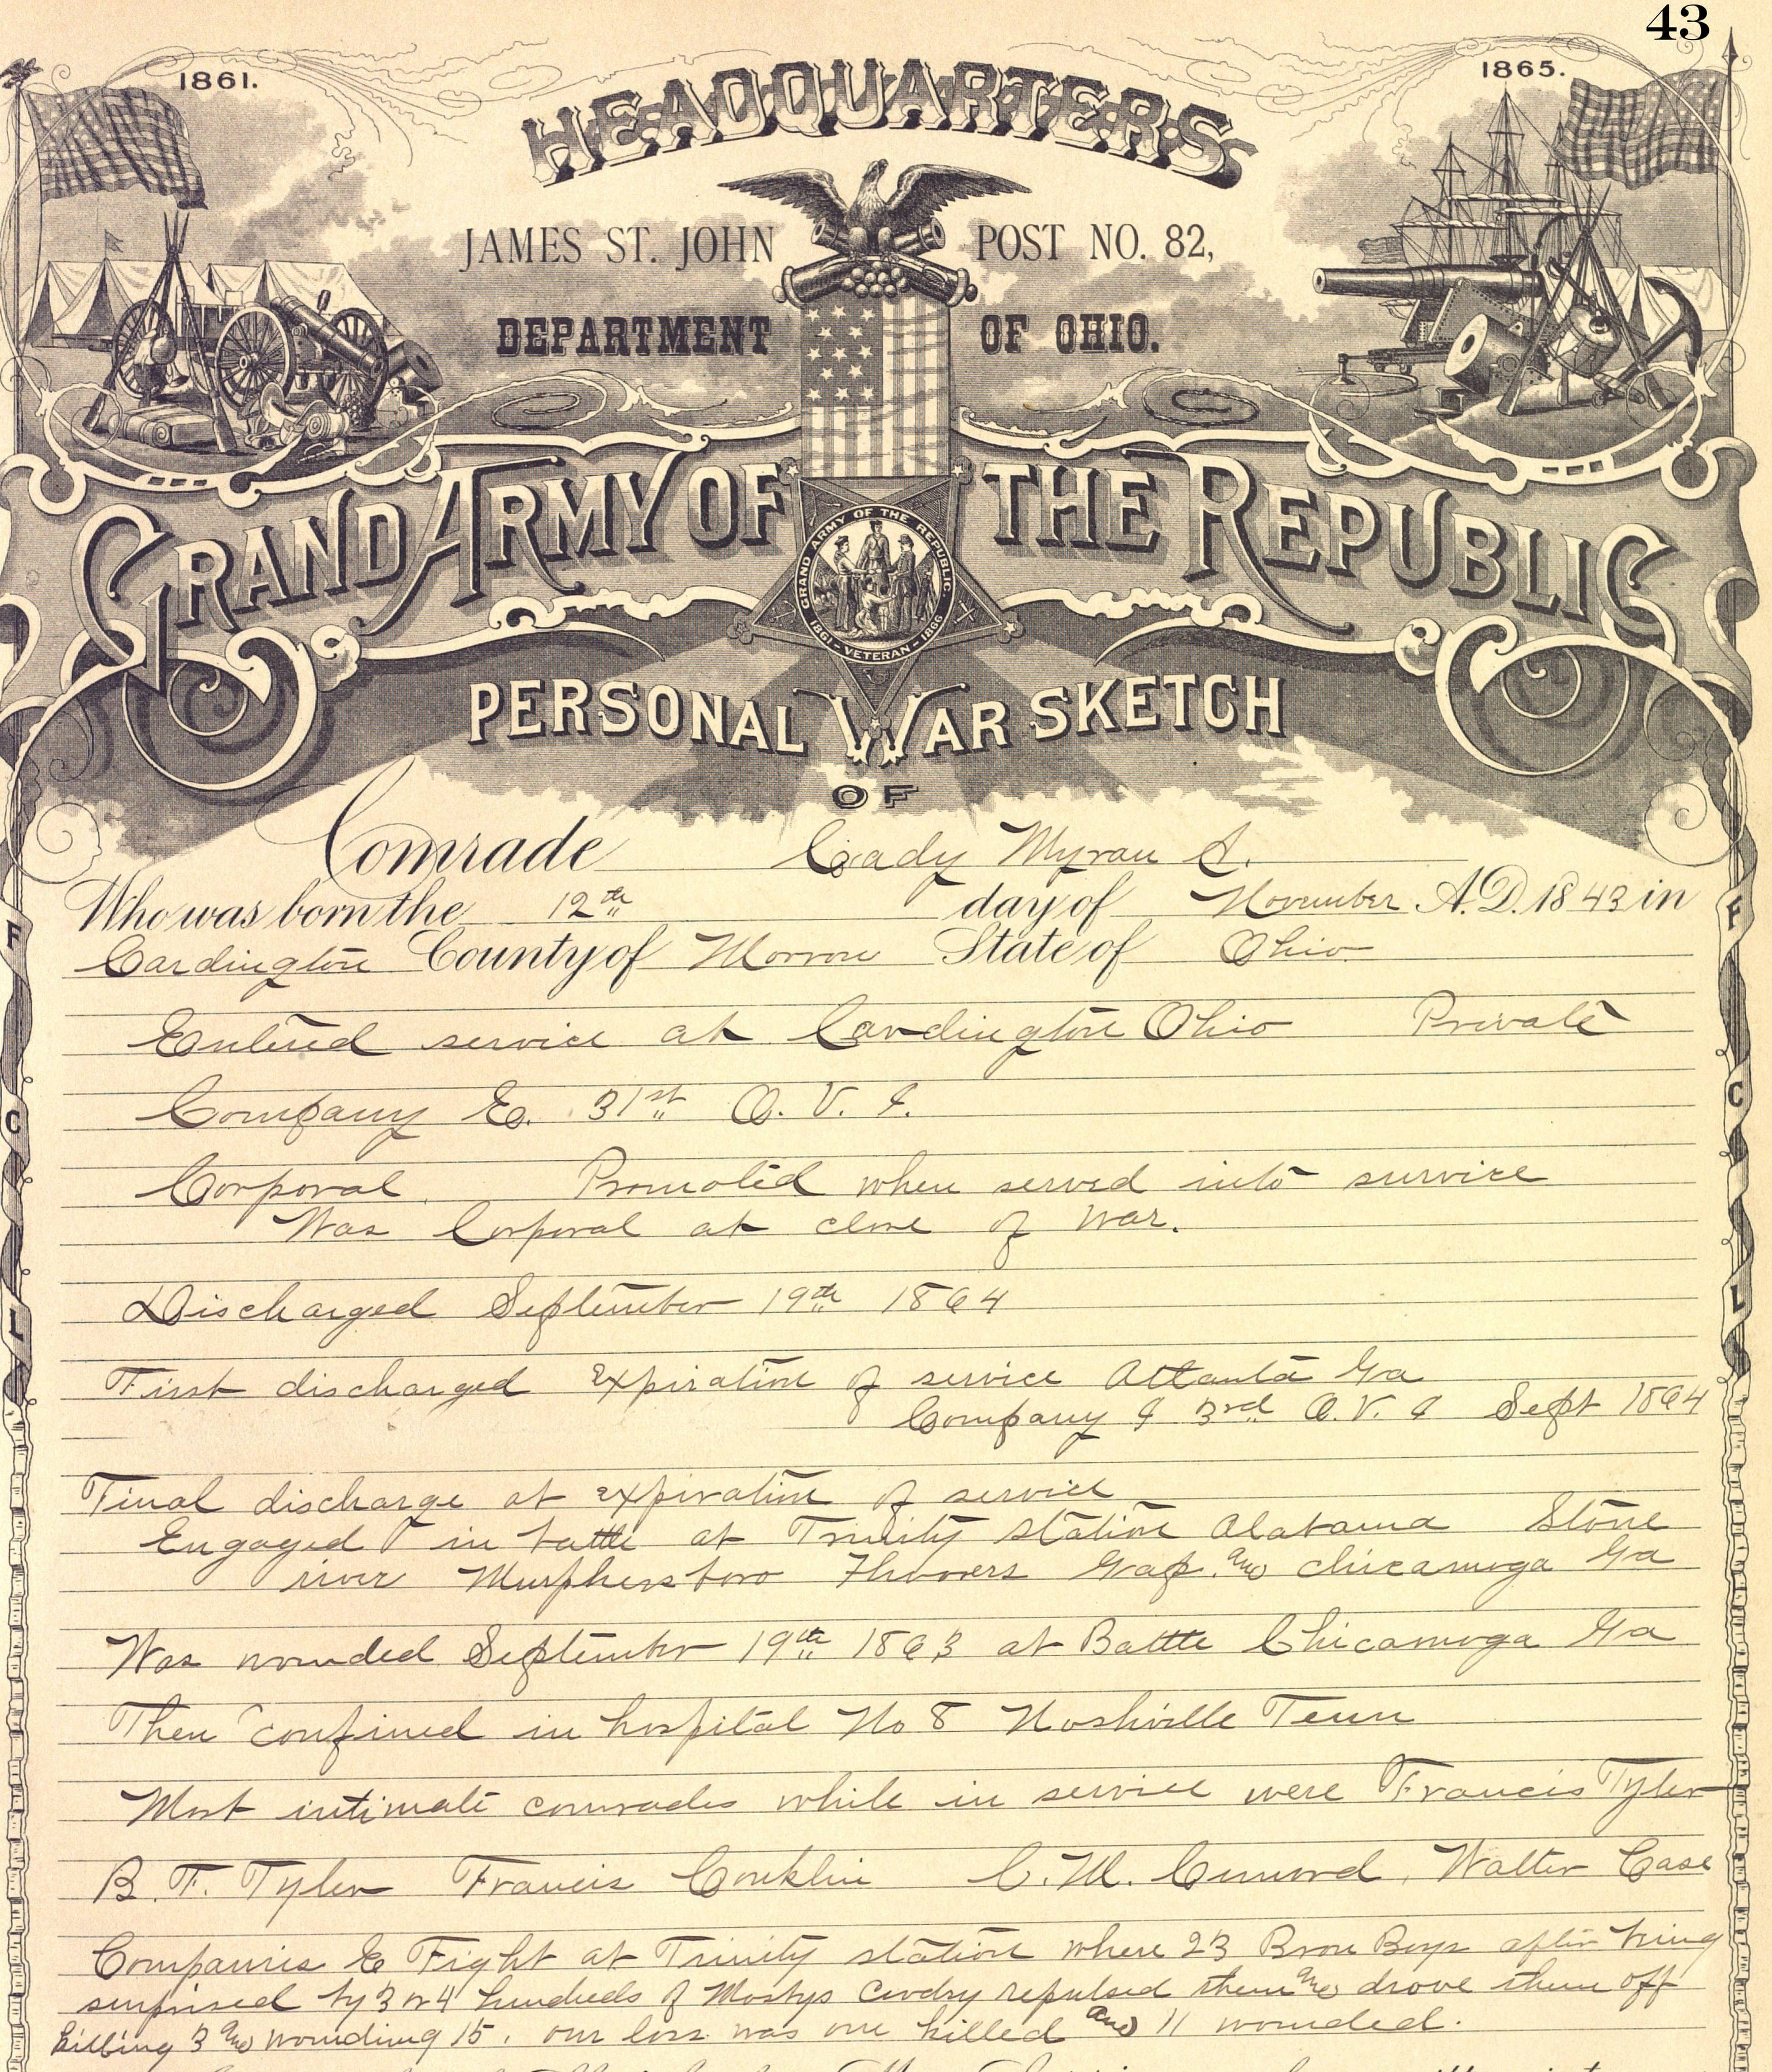 43
1861.
1865.
HEADQUARTERS
JAMES ST. JOHN POST NO. 82,
DEPARTMENT OF OHIO.
GRAND ARMY OF THE REPUBLIC
GRAND ARMY OF THE REPUBLIC
1861 - VETERAN - 1866
PERSONAL WAR SKETCH
OF
Comrade Cady Myron S.
Who was born the 12th day of November A.D. 1843 in
Cardington County of Morrow State of Ohio
F F
Entered service at Cardington Ohio Private
Company E. 31st O. V. I.
C C
Corporal Promoted when served into service
Was Corporal at close of War.
Discharged September 19th 1864
L L
First discharged Expiration of service Atlanta Ga
Company I 3rd O. V. I Sept 1864
Final discharge at expiration of service
Engaged in battle at Trinity station Alabama Stone
river Murphersboro Hoovers Gap and Chicamoga Ga
Was wounded September 19th 1863 at Battle Chicamoga Ga
Then confined in hospital No 8 Noshville Tenn
Most intimate comrades while in service were Francis Tyler
B. F. Tyler Francis Conklin C. M. Walter Case
Companies E Fight at Trinity station where 23 Boys after being
surprised by 3 or 4 hundreds of repulsed them and drove them off
killing 3 and wounding 15. our loss was one killed and 11 wounded.